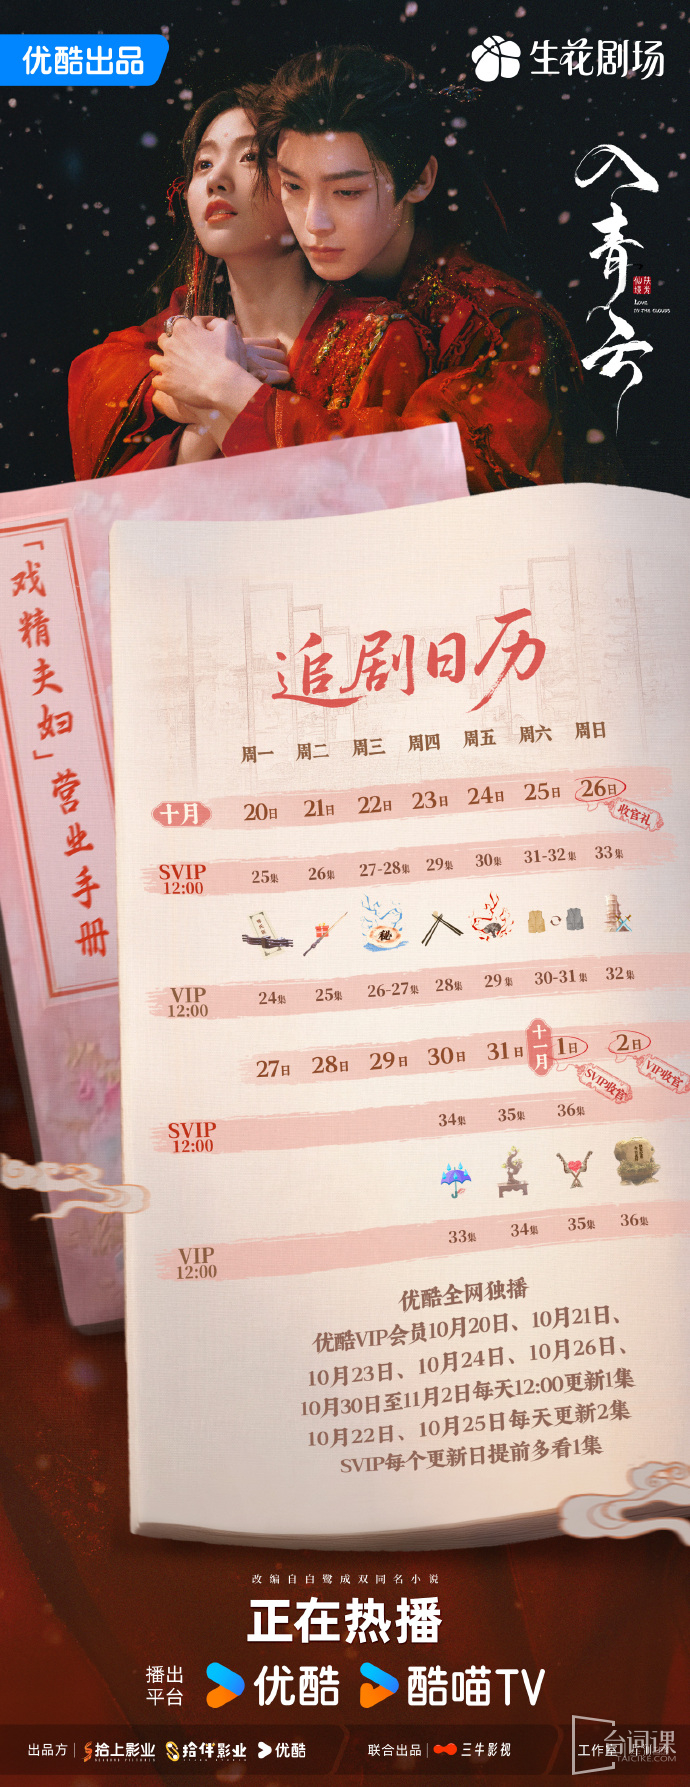 优酷出品
生花剧场
入青云
扶光
仙境
LOVE
IN THE CLOUDS
「戏精夫妇」营业手册
追剧日历
周一 周二 周三 周四 周五 周六 周日
十月 20日 21日 22日 23日 24日 25日 26日
收官礼
SVIP 12:00 25集 26集 27-28集 29集 30集 31-32集 33集
秘
VIP 12:00 24集 25集 26-27集 28集 29集 30-31集 32集
27日 28日 29日 30日 31日 十一月 1日 2日
SVIP收官 VIP收官
SVIP 12:00 34集 35集 36集
VIP 12:00 33集 34集 35集 36集
优酷全网独播
优酷VIP会员10月20日、10月21日、
10月23日、10月24日、10月26日、
10月30日至11月2日每天12:00更新1集
10月22日、10月25日每天更新2集
SVIP每个更新日提前多看1集
改编自白鹭成双同名小说
正在热播
播出平台 优酷 酷喵TV
出品方 拾上影业 拾伴影业 优酷 联合出品 三牛影视 工作室
台词课
TAICIKE.COM